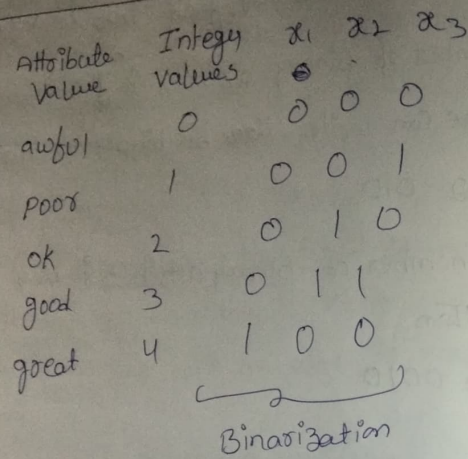 Attribute Value Integer values x1 x2 x3
awful 0 0 0 0
poor 1 0 0 1
ok 2 0 1 0
good 3 0 1 1
great 4 1 0 0
Binarization